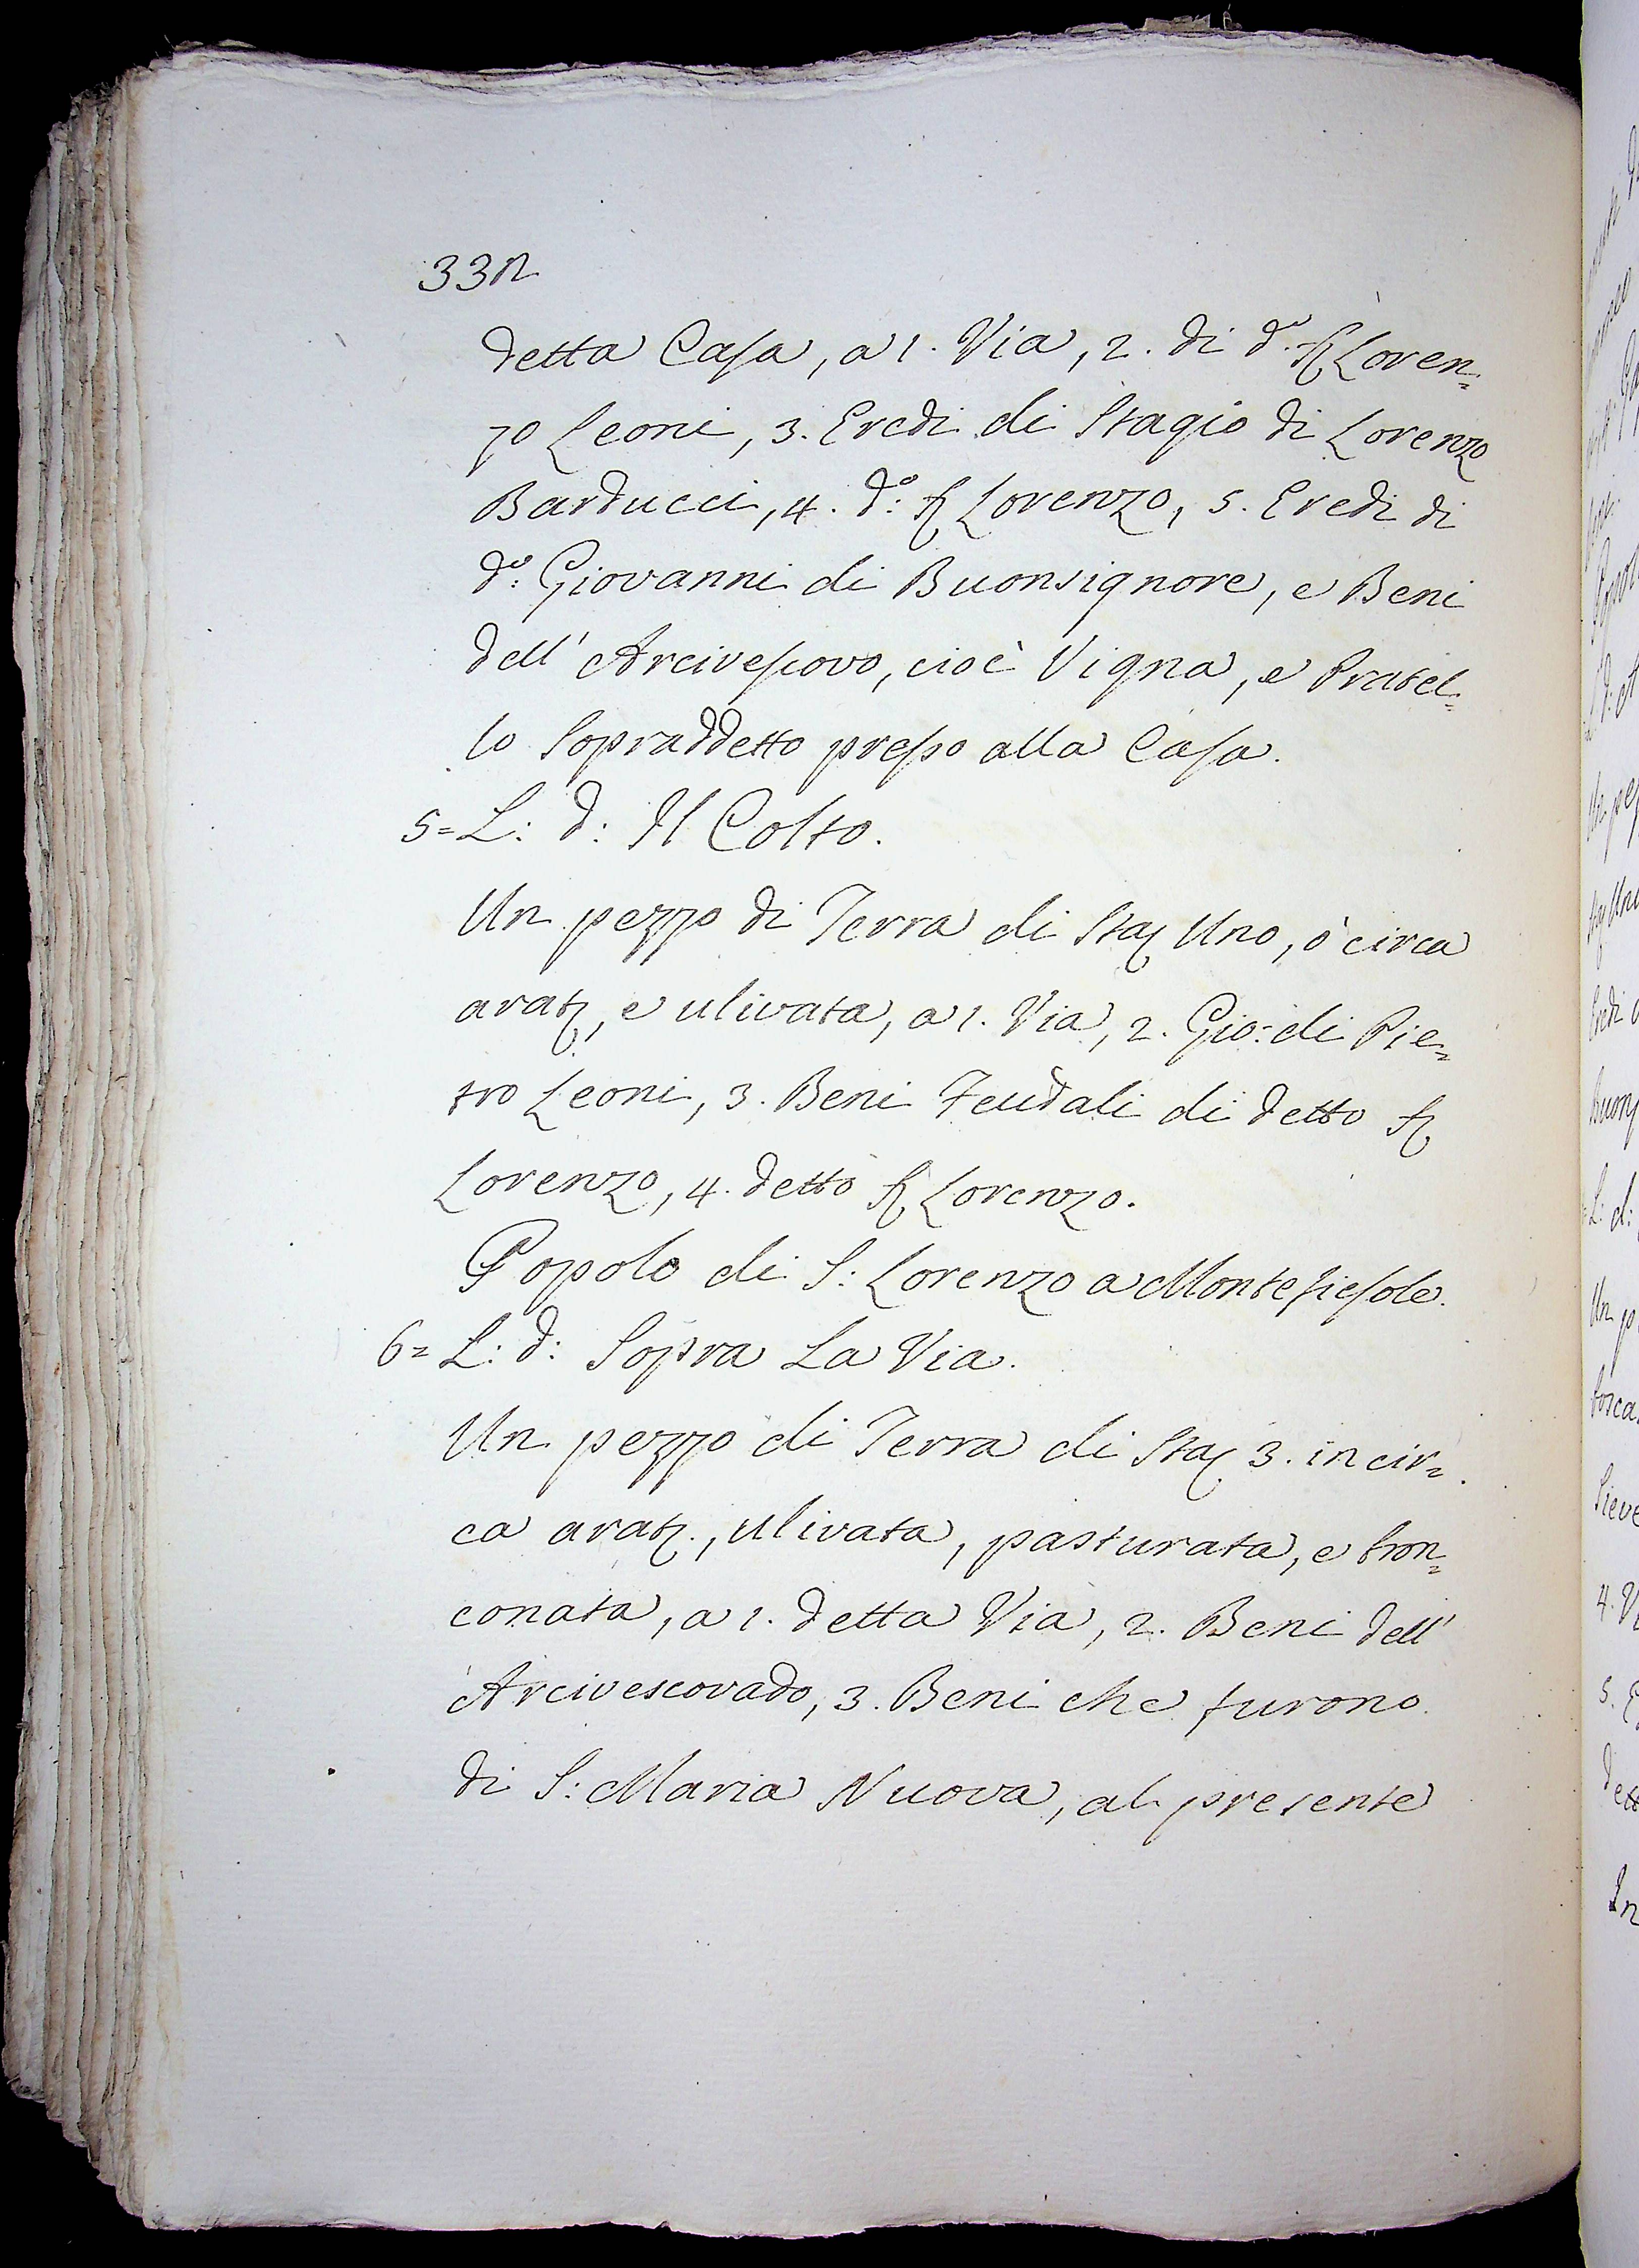 332
detta Casa, a 1. Via, 2. di d.º S. Loren=
zo Leoni, 3. Eredi di Stagio di Lorenzo
Barducci, 4. d.º S. Lorenzo, 5. Eredi di
d.º Giovanni di Buonsignore, e Beni
dell' Arcivescovo, cioè Vigna, e Pratel=
lo Sopraddetto presso alla Casa.
5= L: d: Il Colto.
Un pezzo di Terra di Sta. Uno, ò circa
arat., e ulivata, a 1. Via, 2. Gio: di Pie=
tro Leoni, 3. Beni Feudali di detto S.
Lorenzo, 4. detto S. Lorenzo.
Popolo di S: Lorenzo a Montefiesole.
6= L: d: Sopra La Via.
Un pezzo di Terra di Sta. 3. in cir=
ca arat., ulivata, pasturata, e bron=
conata, a 1. detta Via, 2. Beni dell'
Arcivescovado, 3. Beni che furono
di S: Maria Nuova, al presente